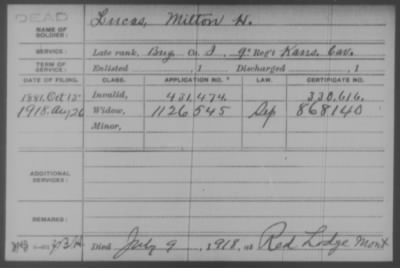 DEAD
NAME OF SOLDIER: Lucas, Milton H.
SERVICE: Late rank, Bug. Co. I, 9" Reg't Kans. Cav.
TERM OF SERVICE: Enlisted , 1 Discharged , 1
DATE OF FILING. CLASS. APPLICATION NO. LAW. CERTIFICATE NO.
1881, Oct 12 Invalid, 431,474. 330,616.
1918, Aug 20 Widow, 1126,545 868140
Minor,
ADDITIONAL SERVICES:
REMARKS:
Died July 9, 1918, at Red Lodge Mont